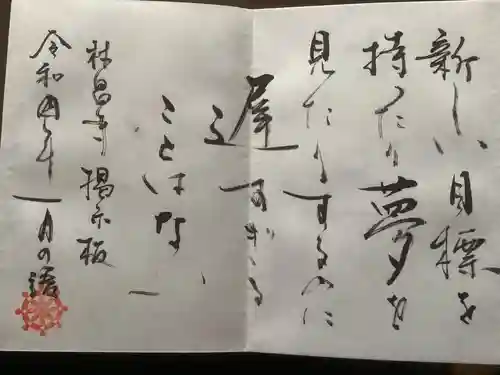 新しい目標を
持ったり夢を
見たりするのに
遅すぎる
ことはない
昌寺 掲示板
令和四年一月の語